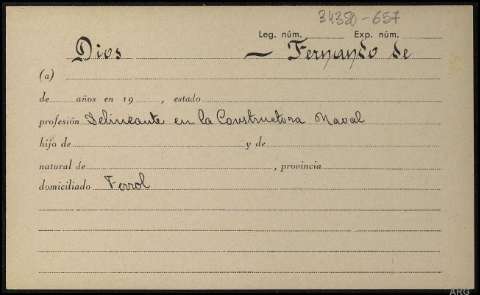 34380-657
Leg. núm. Exp. núm.
Dios — Fernando de
(a)
de años en 19 , estado
profesión Delineante en la Constructora Naval
hijo de y de
natural de , provincia
domiciliado Ferrol
ARG